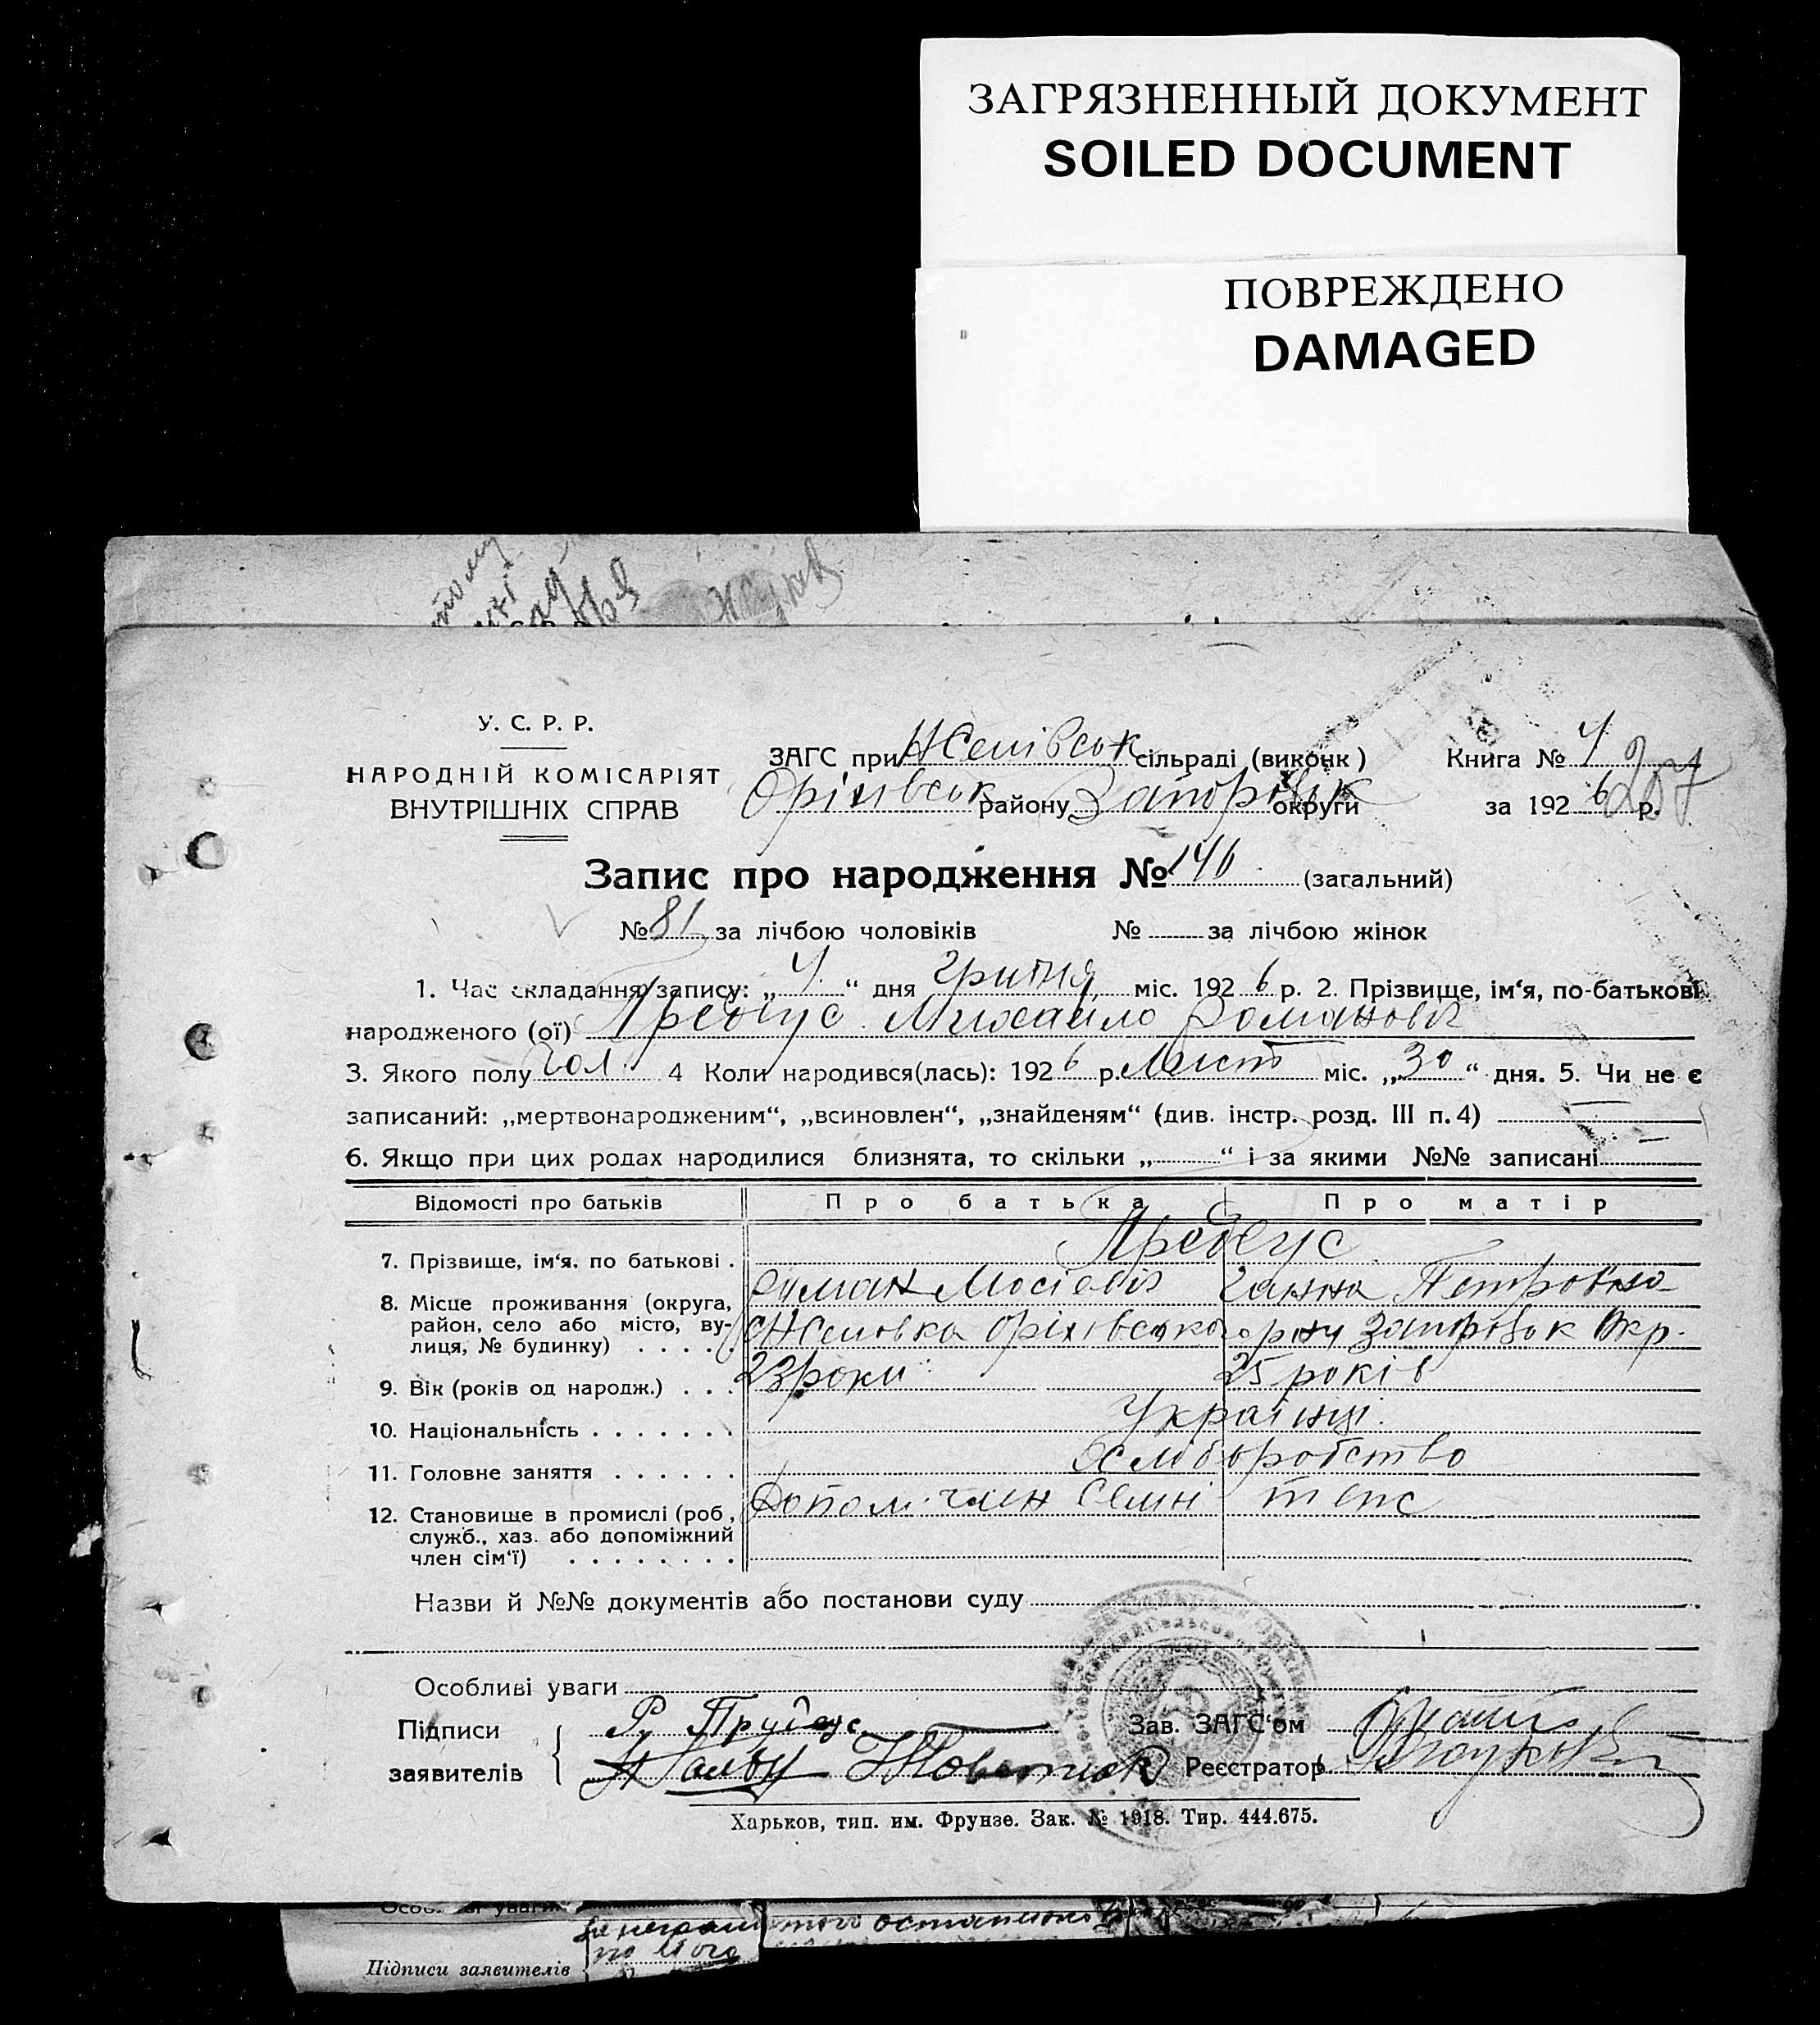 ЗАГРЯЗНЕННЫЙ ДОКУМЕНТ
SOILED DOCUMENT
ПОВРЕЖДЕНО
DAMAGED
У. С. Р. Р.
НАРОДНІЙ КОМІСАРІЯТ
ВНУТРІШНІХ СПРАВ
ЗАГС при сільраді (виконк )
Оріхівськ району Запоріжж округи
Книга №
за 1926 р.
207
Запис про народження № 146 (загальний)
№ 81 за лічбою чоловіків № за лічбою жінок
1. Час складання запису: „ “ дня грудня міс. 1926 р. 2. Прізвище, ім‘я, по-батькові
народженого (ої) Михайло Романовіч
3. Якого полу чол. 4 Коли народився(лась): 1926 р. Лист міс. „30“ дня. 5. Чи не є
записаний: „мертвонародженим“, „всиновлен“, „знайденям“ (див. інстр. розд. III п. 4) —
6. Якщо при цих родах народилися близнята, то скільки „ “ і за якими №№ записані —
Відомості про батьків Про батька Про матір
7. Прізвище, ім‘я. по батькові .
Роман Мосієвіч Ганна Петровна
8. Місце проживання (округа,
район, село або місто, ву-
лиця, № будинку) . . . . .
Оріхівського р-ну Запоріжж Окр.
9. Вік (років од народж.) . . . 23 роки 25 років
10. Національність . . . . . . . Українці.
11. Головне заняття . . . . . . Хліборобство
12. Становище в промислі (роб ,
служб., хаз. або допоміжний
член сім‘ї) . . . . . . . .
Допом. член Семні теж
Назви й №№ документів або постанови суду
Особливі уваги
Підписи
заявителів
Р.
Зав. ЗАГС‘ом
Реєстратор
Харьков, тип. им. Фрунзе. Зак. № 1918. Тир. 444.675.
Особливі уваги
Підписи заявителів